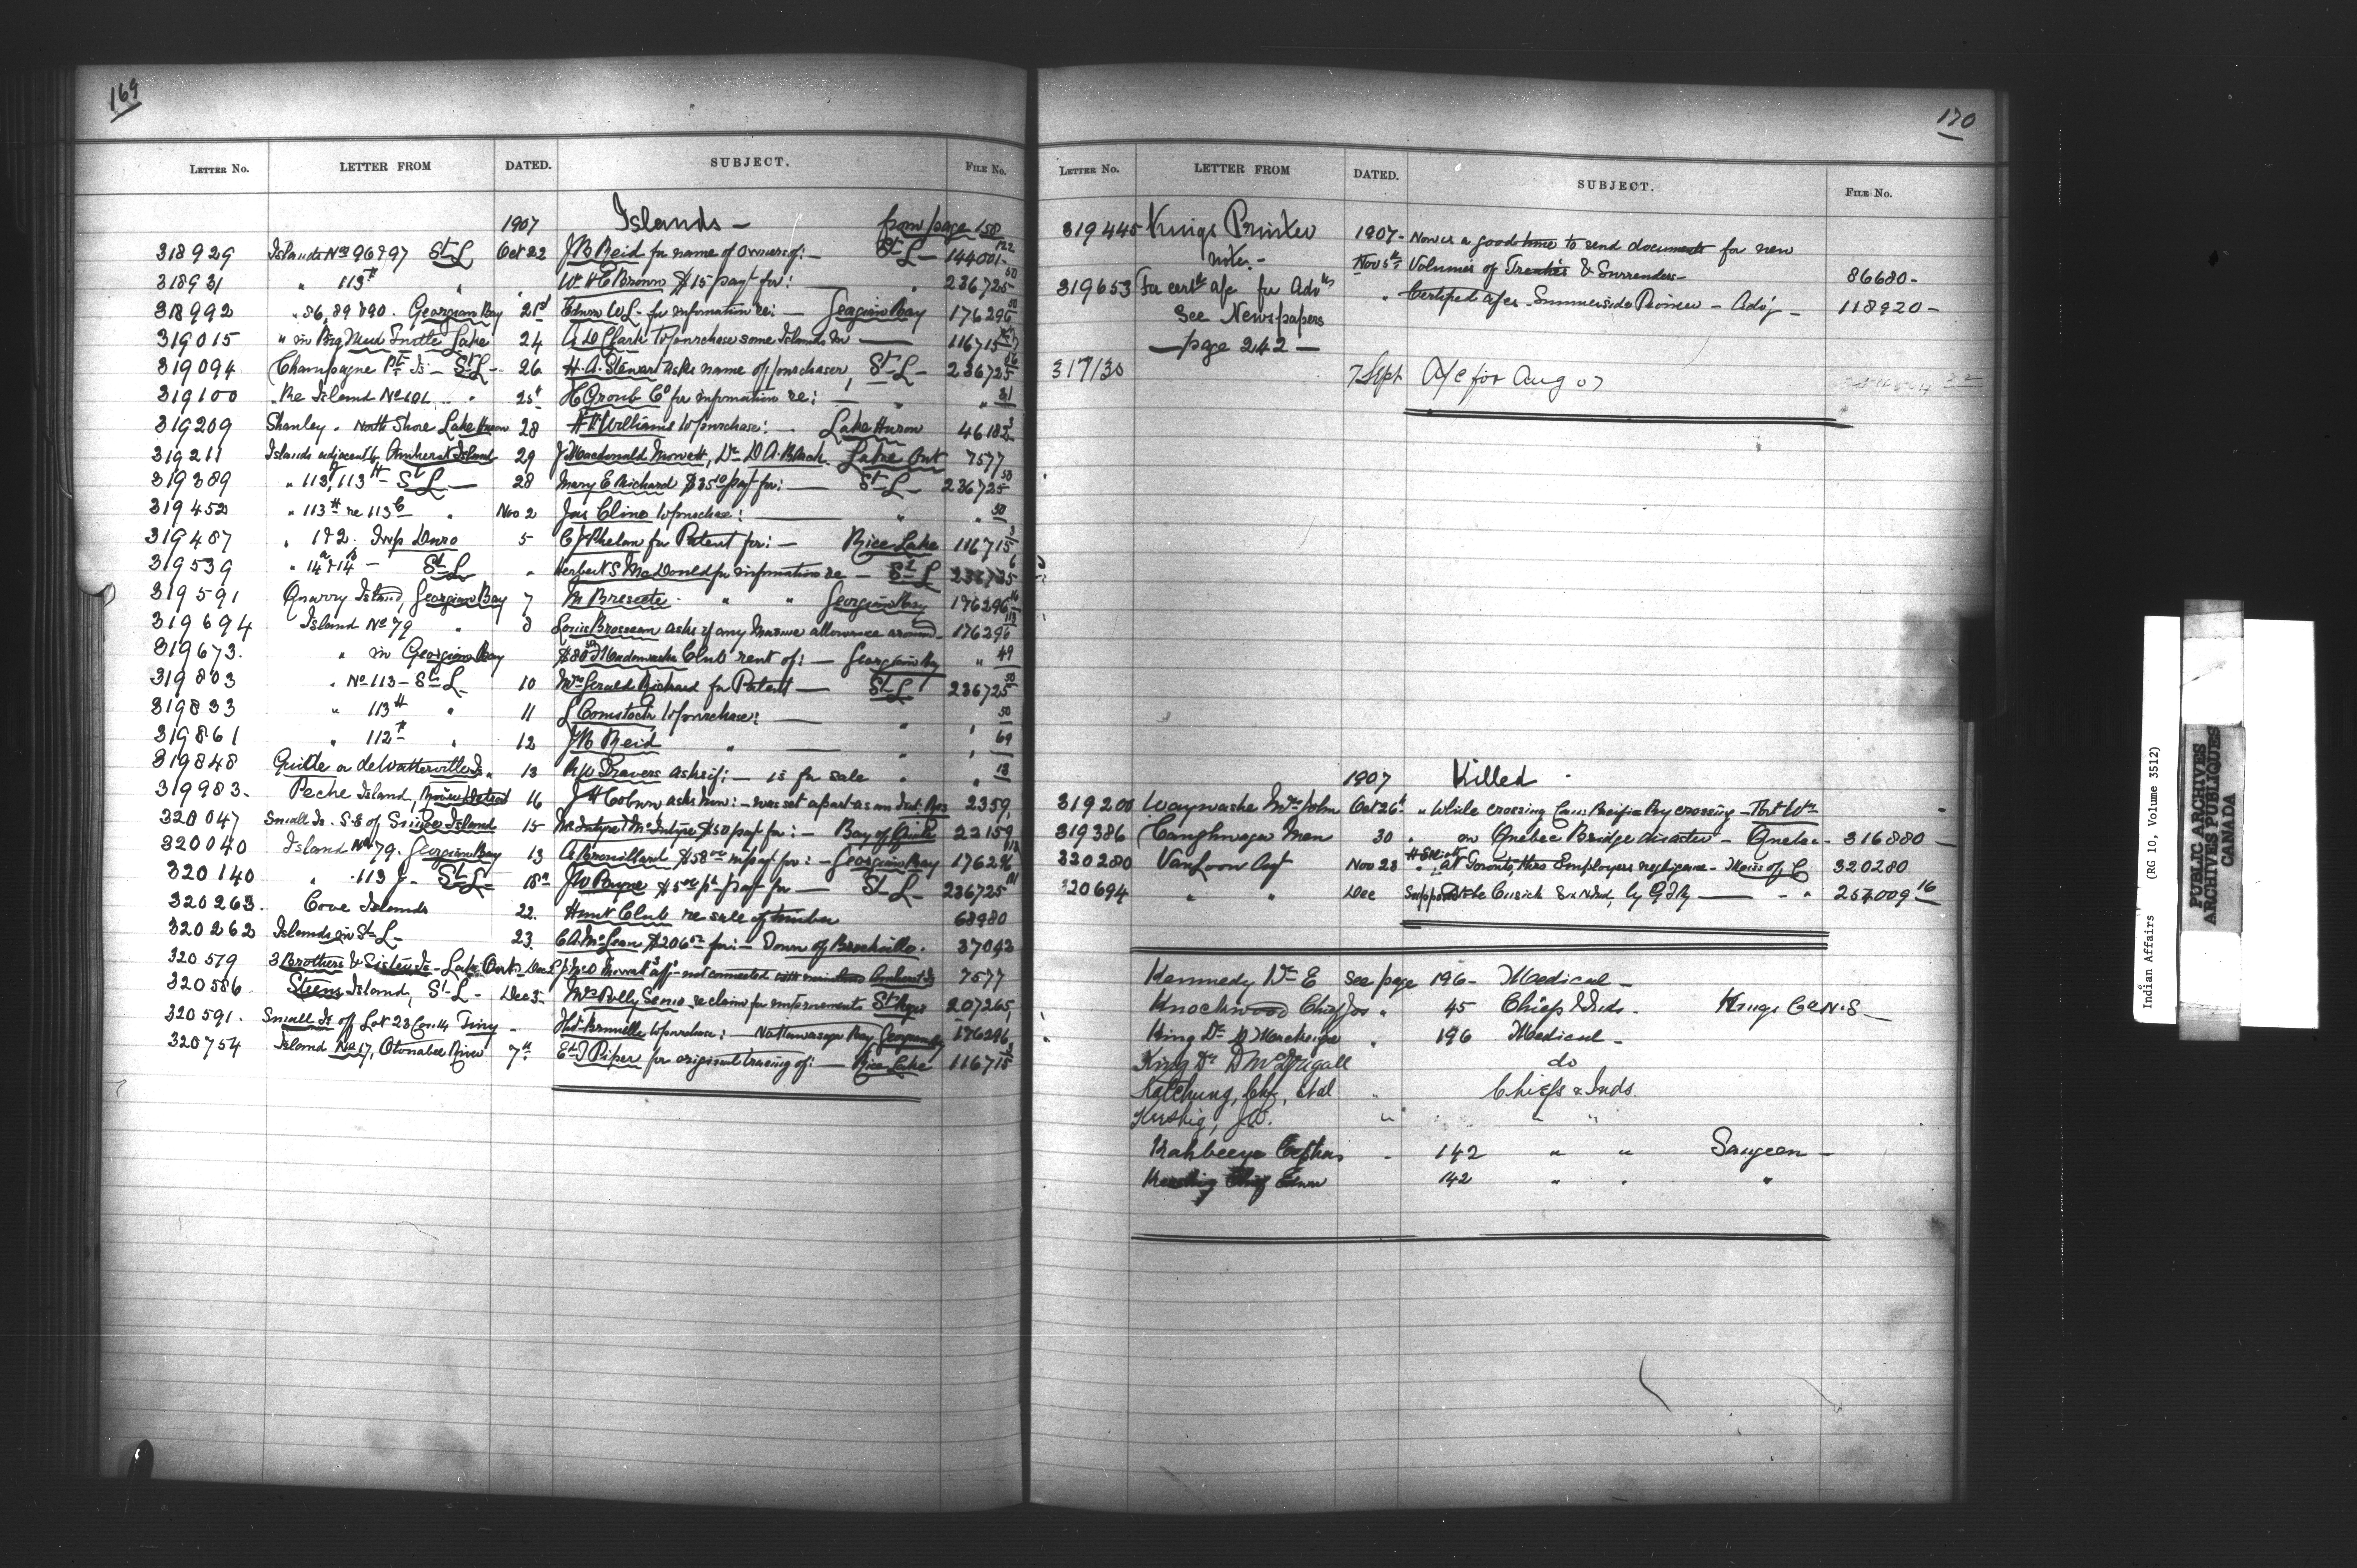 169
LETTER NO. LETTER FROM DATED. SUBJECT. FILE No.
1907 Islands — from page 158
318929 Islands Nos 96 & 97 St L Oct 22 J B Reid for name of owners of: — St L — 144001-122
318931 " 113 H " " Wm H C Brown $15 pay't for: " 236725 50
318992 " 86, 89 & 90. Georgian Bay 21st Edwin W L- for information re: — Georgian Bay 176296
319015 " in Big Mud Turtle Lake 24 A D Clark to purchase some Islands in — 116715
319094 Champagne Pt Is — St L — 26 H. A. Stewart asks name of purchaser, St L — 236725
319100 Re Island No 101 " " 25th H Gronb Co for information re: — " " 31
319209 Shanley. North Shore Lake Huron 28 Williams to purchase: — Lake Huron 46182
319211 Islands adjacent to Amherst Island 29 J Macdonald Mowett, Dr D A Black. Lake Ont 7577
319389 " 113, 113 H — St L — 28 Mary E Richard $35 00 pay't for: — St L — 236725 50
319452 " 113 H re 113 C " Nov 2 Jas Cline to purchase: — " " 50
319487 " 1 & 2. Twp Douro 5 C J Phelan for Patent for: — Rice Lake 116715
319539 " 14 A & 14 B — St L " Herbert S McDonald for information re — St L 236725 6
319591 Quarry Island, Georgian Bay 7 M " " Georgian Bay 176296 16
319694 Island No 79 " 8 Louis Brosseau asks if any Marine allowance around. 176296 113
319673. " in Georgian Bay $80 00 Madawaska Club rent of: — Georgian Bay " 49
319803 " No 113 — St L — 10 Mrs Gerald Richard for Patent — St L 236725 50
319833 " 113 H " 11 L Comstock to purchase: — " " 50
319861 " 112 " 12 J B Reid " — " " 69
319848 or de Watterville Is. 13 R W Travers asks if: — is for sale " " 13
319983. Peche Island, River Detroit 16 J H Coburn asks how: — was set apart as an Ind. Res 2359
320047 Small Is. S.E of Island 15 McIntyre & McIntyre $50 pay't for: — Bay of Quinte 22159
320040 Island No 79. Georgian Bay 13 A Brouillard $58 00 in pay't for: — Georgian Bay 176296 113
320140 " 113 J — St L — 18th J W Payne $5 00 pay't for — St L — 236725
320263. Cove Islands 22. Hunt Club re sale of timber 68980
320262 Islands in St L — 23. C A McLean $206 for: — Town of Brockville. 37043
320579 3 Brothers & Sister Is — Lake Ont. Dec 2 J McD Mowat's aff't not connected with Amherst Is 7577
320586 Island, St L — Dec 3 Mrs Polly Senio re claim for improvements St Regis 207265
320591. Small Is off Lot 23 Con 14 Tiny — Hbt Brunelle to purchase: Nottawasaga Bay, Georgian Bay 176296
320754 Island No 17, Otonabee River 7th E D Piper for original tracing of: — Rice Lake 116715
170
LETTER NO. LETTER FROM DATED. SUBJECT. FILE No.
319445 Kings Printer 1907 — Now is a good time to send documents for new
notes — Nov 5th Volumes of Treaties & Surrenders — 86680 —
319653 For certd a/c for Advts " Certified a/cs Summerside Pioneer — Adv'g — 118920 —
See Newspapers
— page 242 —
317130 7 Sept A/c for Aug 07
1907 Killed
319200 Waywashe Mrs John Oct 26th " While crossing Can. Pacific Ry crossing — Fort Wm
319386 Caughnaga Men 30 " on Quebec Bridge disaster — Quebec — 316880 —
320280 VanLoon Agt Nov 23 " at Toronto, thro Employers negligence — Miss of C 320280
320694 " " Dec Supposed to be Cusick Six Nind, by G T Ry — " " 254009 16
Kennedy Dr E see page 196 — Medical —
Knockwood Chief Jos " 45 Chiefs & Inds. Kings Co N.S —
King Dr D Murchison " 196 Medical —
King Dr D McDougall do
Ketchung, Chf, et al " Chiefs & Inds
Keeshig, J W. " " "
Kahbeeye Cephas — 142 " " Saugeen —
Keeshig Chief Edwar 142 " " "
Indian Affairs (RG 10, Volume 3512)
PUBLIC ARCHIVES
ARCHIVES PUBLIQUES
CANADA